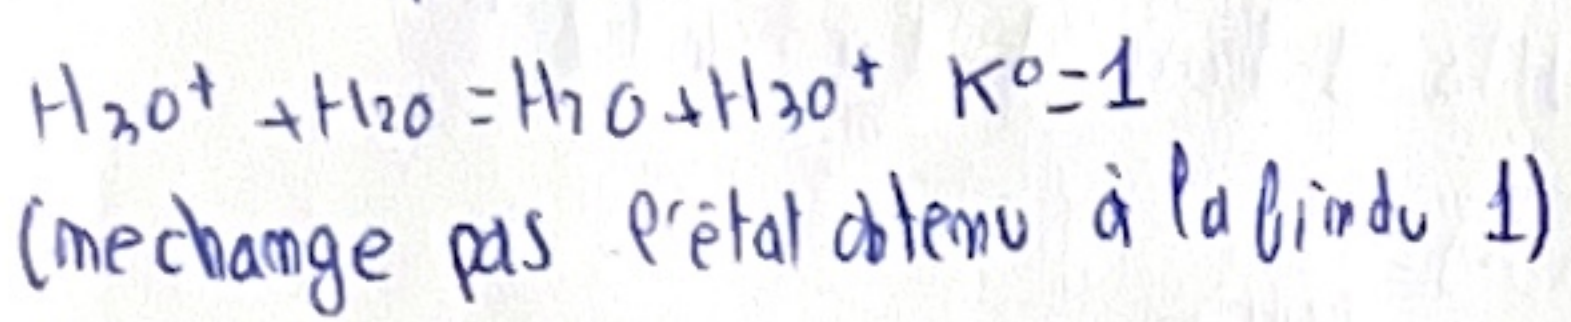 H₃O⁺ + H₂O = H₂O + H₃O⁺ K° = 1
(ne change pas l'état obtenu à la fin du 1)